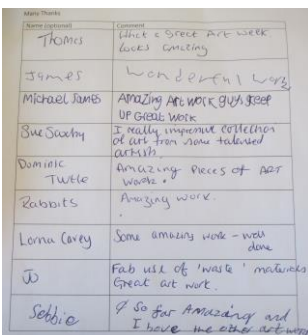 Many Thanks
Name (optional) Comment
Thomas What a Great Art Week
Looks amazing
James Wonderful Work
Michael James Amazing Art work guys keep
UP Great Work
Sue I really impressive collection
of art from some talented
artists.
Dominic Amazing Pieces of ART
Turtle work.
Rabbits Amazing work.
Lorna Carey Some amazing work - well
done
Fab use of 'waste' materials
Great art work.
Sebbie So far Amazing and
I have the other art work